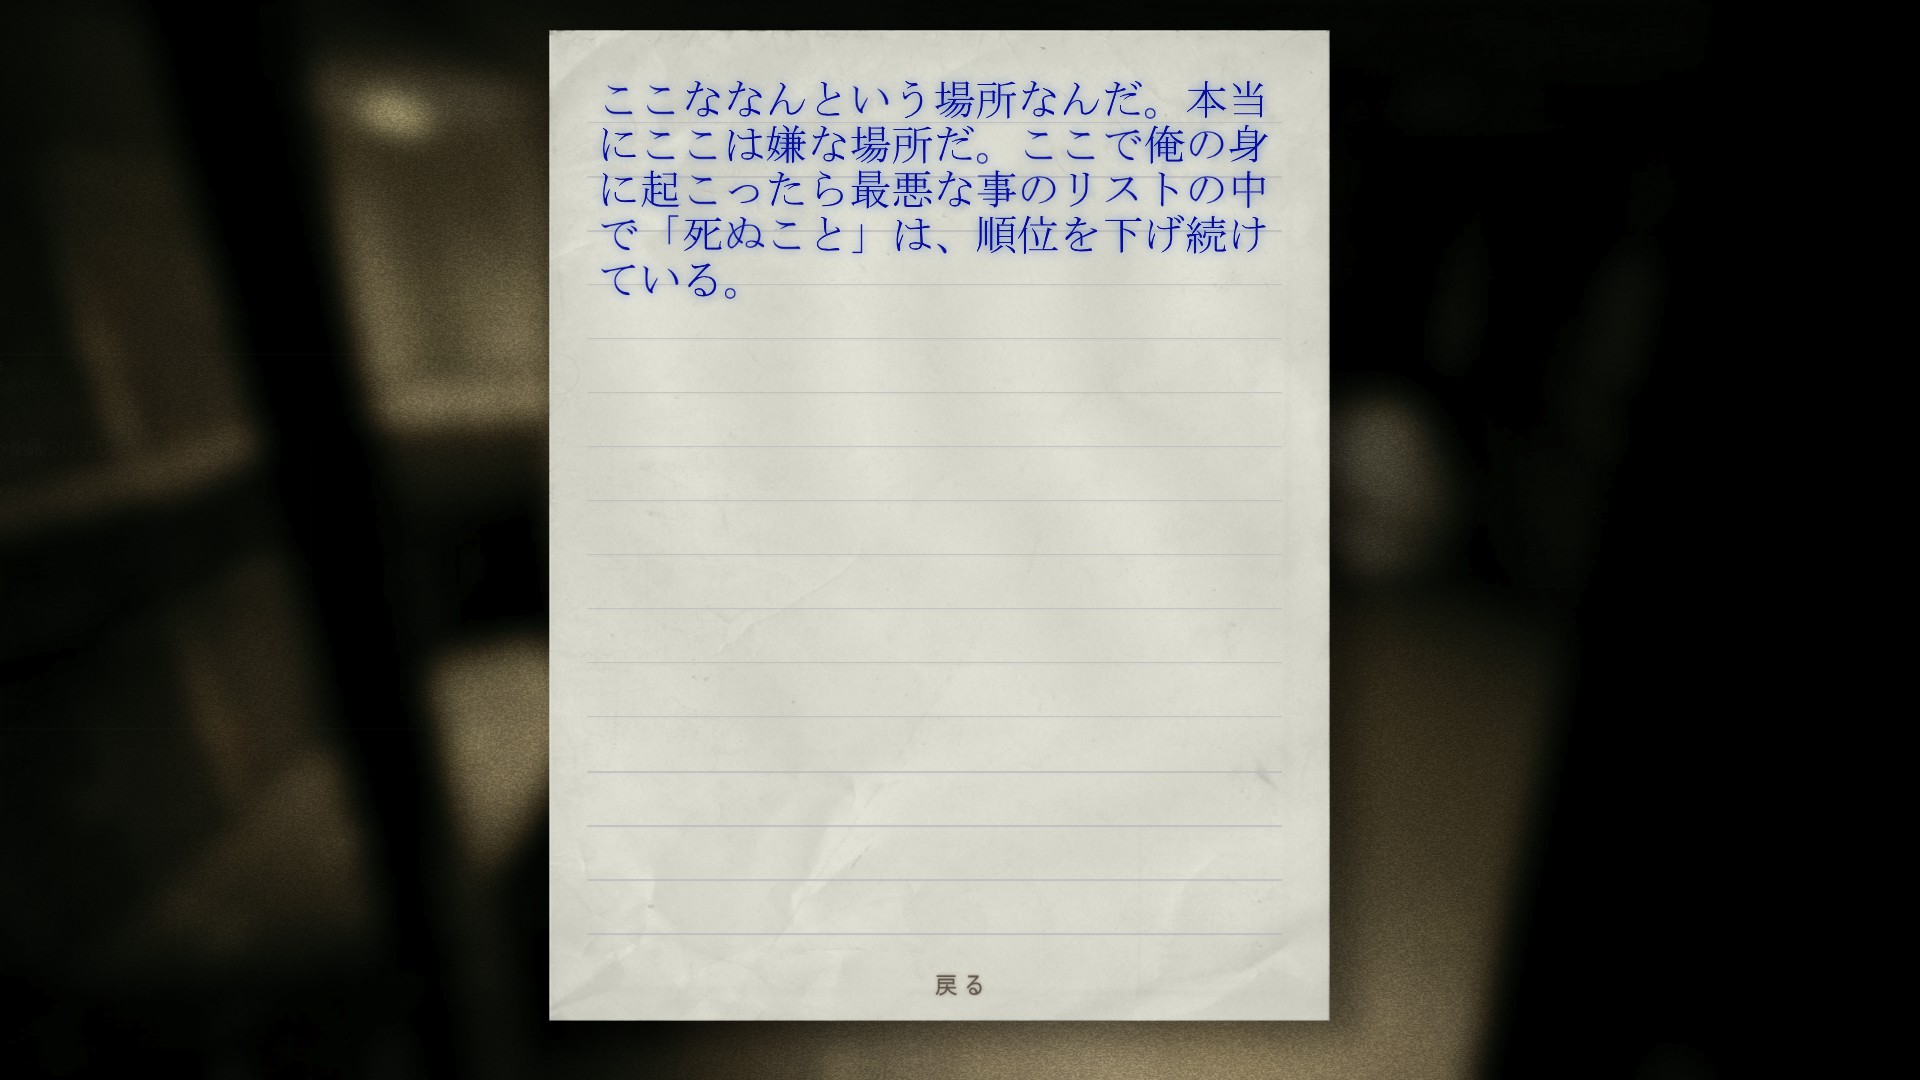 ここななんという場所なんだ。本当
にここは嫌な場所だ。ここで俺の身
に起こったら最悪な事のリストの中
で「死ぬこと」は、順位を下げ続け
ている。
戻る